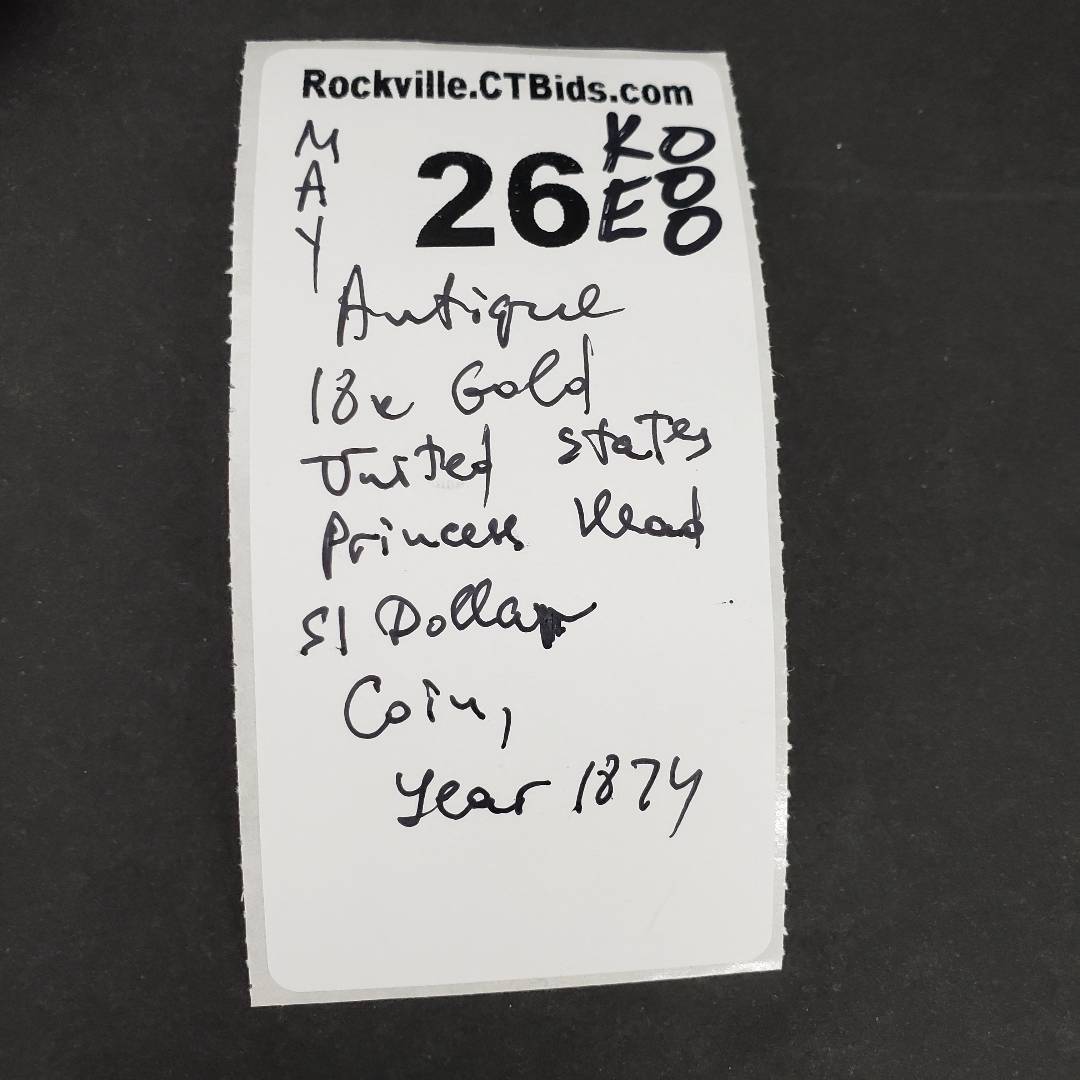 Rockville.CTBids.com
MAY
26
KO
EO
O
Antique
18k Gold
United States
Princess Head
$1 Dollar
Coin,
year 1874